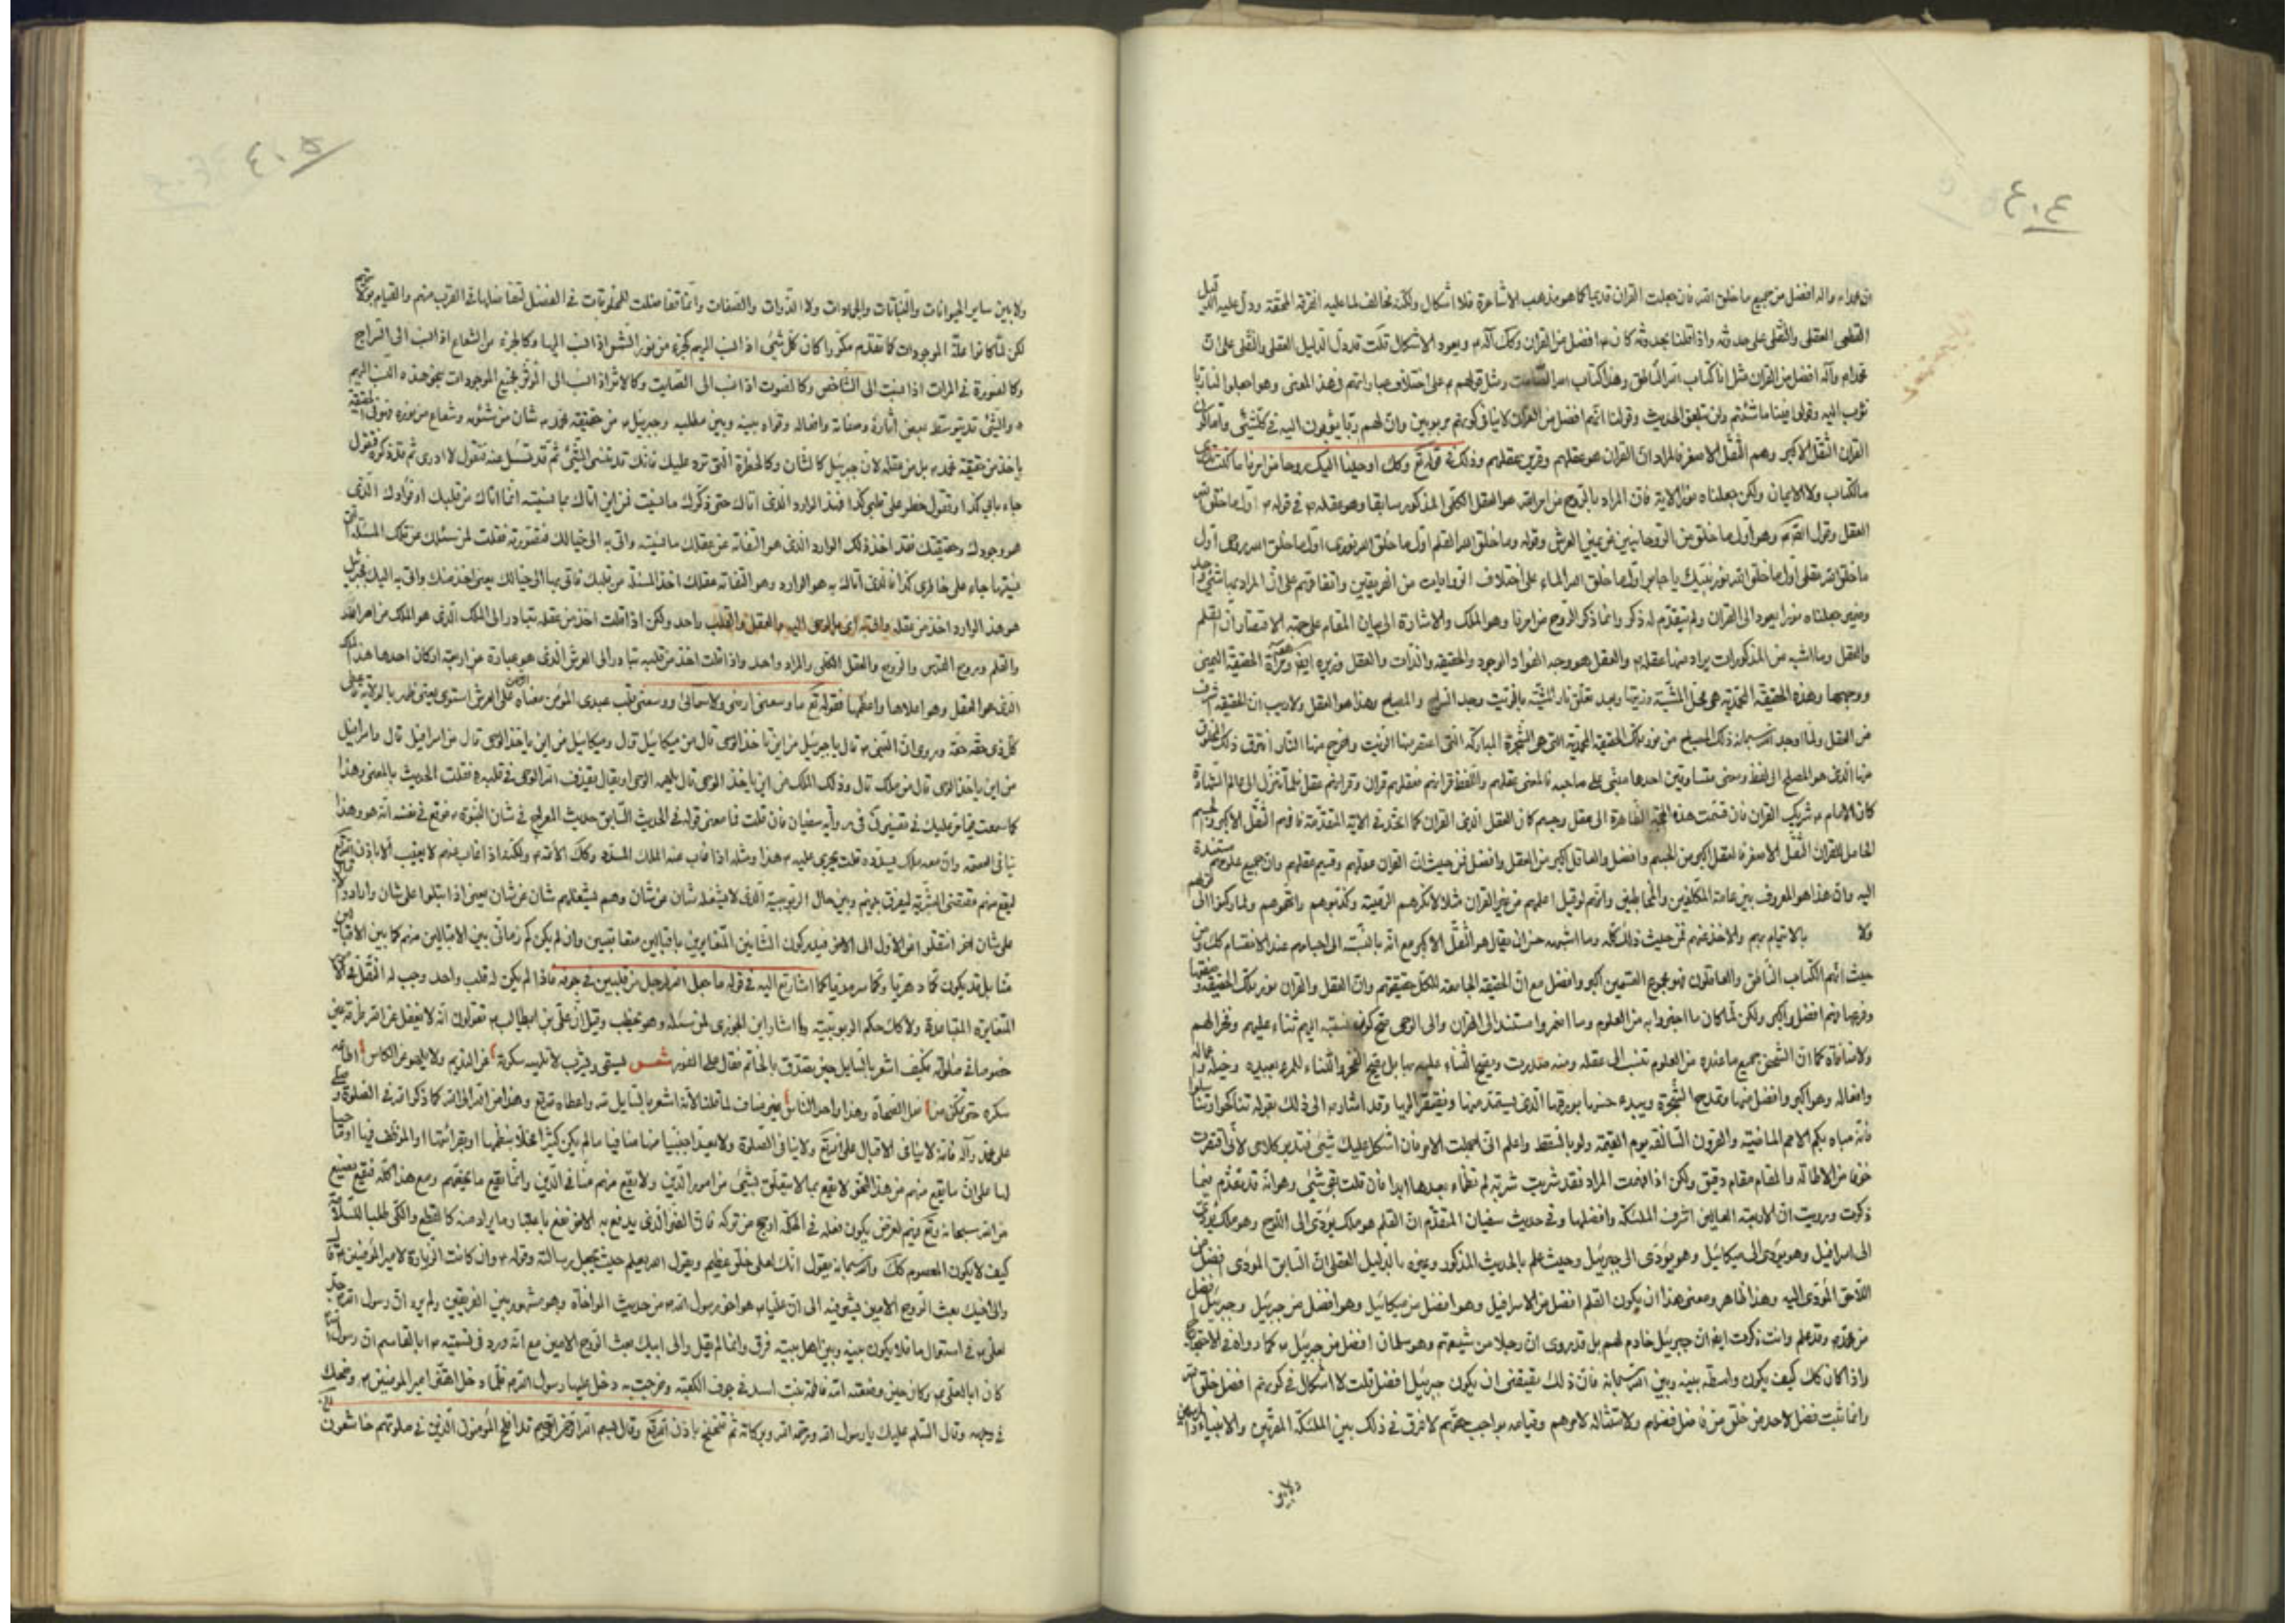 ٤٠٤
ان محمدا وآله افضل من جميع ما خلق الله فان جعلت القران قديما كما هو مذهب الاشاعرة فلا اشكال ولكنه مخالف لما عليه الفرقة المحقة ودل عليه الدليل
القطعى العقلى والنقلى على حدوثه واذا قلنا بحدوثه كان م افضل من القران وكك آله م ويعود الاشكال قلت قد دل الدليل العقلى والنقلى على ان
محمدا م وآله افضل من القران مثل انا كتاب الله الناطق وهذا كتاب الله الصامت ومثل قولهم م على اختلاف عباراتهم فى هذا المعنى وهو اجعلوا لنا ربا
نؤب اليه وقولوا فينا ما شئتم ولن تبلغوا الحديث وقولنا انهم افضل من القران لا ينافى كونهم مربوبين وان لهم ربا يؤبون اليه فى كل شئ وانما كان
القران الثقل الاكبر وهم الثقل الاصغر فالمراد ان القران هو عقلهم وقرين عقلهم وذلك فى قوله تع وكك اوحينا اليك روحا من امرنا ما كنت تدرى
ما الكتاب ولا الايمان ولكن جعلناه نورا الاية فان المراد بالروح من امر الله هو العقل الكلى المذكور سابقا وهو عقله م فى قوله م اول ما خلق الله
العقل وقول وهو اول ما خلق من الروحانيين عن يمين العرش وقوله وما خلق الله القلم اول ما خلق الله نورى اول ما خلق الله روحى اول
ما خلق الله عقلى اول ما خلق الله نور نبيك يا جابر اول ما خلق الله الماء على اختلاف الروايات من الفريقين واتفاقهم على ان المراد بها شئ واحد
وضمير جعلناه نورا يعود الى القران ولم يتقدم له ذكر وانما ذكر الروح من امرنا وهو الملك والاشارة الى بيان المقام على جهة الاقتصار ان القلم
والعقل وما اشبه من المذكورات يراد منها عقله م والعقل هو وجه الفؤاد الوجود والحقيقة والذات والعقل وزيره
ووجهها وهذه الحقيقة المحمدية هى محل المشية وزيتها وبعد تعلق نار المشية بالزيت وجد السراج والمصباح وهذا هو العقل ولا ريب ان الحقيقة اشرف
من العقل ولما اوجد الله سبحانه ذلك المصباح من نور تلك الحقيقة المحمدية التى هى الشجرة المباركة التى اعتصر منها الزيت واخرج منها النار افترق ذلك المخلوق
منها الذى هو المصباح الى لفظ ومعنى متساوقين احدهما مبنى على صاحبه فالمعنى عقلهم واللفظ قرانهم فعقلهم قران وقرانهم عقل فلما تنزل الى عالم الشهادة
كان الامام م شريك القران فان قسمت هذه الجثة الظاهرة الى عقل وجسم كان العقل الذى القران كما اتحد فى الاية المتقدمة فافهم الثقل الاكبر والجسم
الحامل للقران الثقل الاصغر فالعقل اكبر من الجسم وافضل والعاقل اكبر من العقل وافضل فمن حيث ان القران عقلهم وقسيم عقلهم وان جميع علومهم مستندة
اليه وان هذا هو المعروف بين عامة المكلفين والمخاطبين وانهم لو قيل اعلمهم من غير القران مثلا لانكرهم الرعية وكذبوهم واتهموهم ولما ركنوا الى
ولا بالايتمام بهم والاخذ عنهم فمن حيث ذلك كله وما اشبهه حسن ان يقال هو الثقل الاكبر مع انه بالنسبة الى اجسامهم عند الانقسام كك ومن
حيث انهم الكتاب الناطق والعاملون فهو مجموع القسمين اكبر وافضل مع ان الحقيقة الجامعة للكل حقيقتهم وان العقل والقران نور تلك الحقيقة وصفتها
وفرعها فهم افضل واكبر ولكن لما كان ما اخبروا به من العلوم وما استند الى القران والى الوحى صح كونه نسبته اليهم ثناء عليهم وفخرا لهم
ولا منافاة كما ان الشخص جميع ما عنده من العلوم تنسب الى عقله ومنه صدرت ويصح الثناء عليه بها بل يصح الفخر والثناء للمرء بعبيده وخيله وماله
وافعاله وهو اكبر وافضل منها وتمدح الشجرة ويبدء حسنها بورقها الذى يستمد منها ويفتقر اليها وقد اشار م الى ذلك بقوله تناكحوا تناسلوا
فانى مباه بكم الامم الماضية والقرون السالفة يوم القيمة ولو بالسقط واعلم انى اجملت الامر فان اشكل عليك شئ فتدبر كلامى لانى اقتصرت
خوفا من الاطالة والمقام مقام دقيق ولكن اذا فهمت المراد فقد شربت شربة لم تظماء بعدها ابدا فان قلت بقى شئ وهو انه قد تقدم فيما
ذكرت ورويت ان الاربعة العالين اشرف الملئكة وافضلها وفى حديث سفيان المتقدم ان القلم هو ملك يؤدى الى اللوح وهو ملك يؤدى
الى اسرافيل وهو يؤدى الى ميكائيل وهو يؤدى الى جبرئيل وحيث علم بالحديث المذكور وغيره بالدليل العقلى ان السابق المؤدى افضل من
اللاحق المؤدى اليه وهذا ظاهر ومعنى هذا ان يكون القلم افضل من الاسرافيل وهو افضل من ميكائيل وهو افضل من جبرئيل وجبرئيل افضل
من محمد م وقد علم وانت ذكرت ايضا ان جبرئيل خادم لهم بل قد يروى ان رجلا من شيعتهم وهو سلمان افضل من جبرئيل م كما رواه فى الاحتجاج
واذا كان كك كيف يكون واسطة بينه وبين الله سبحانه فان ذلك يقتضى ان يكون جبرئيل افضل قلت لا اشكال فى كونهم افضل خلق الله
وانما ثبت فضل لاحد من خلق من فاضل فضلهم ولامتثاله لامرهم وقيامه بواجب حقهم لا فرق فى ذلك بين الملئكة المقربين والانبياء والمرسلين
ولا بين
٤٠٥
ولا بين ساير الحيوانات والنباتات والجمادات ولا الذوات والصفات وانما تفاضلت المخلوقات فى الفضل لتفاضلها فى القرب منهم والقيام بولايتهم
لكن لما كانوا علة الموجودات كما تقدم مكررا كان كل شئ اذا نسب اليهم كجزء من نور الشمس اذا نسب اليها وكالجزء من الشعاع اذا نسب الى السراج
وكالصورة فى المرات اذا نسبت الى الشاخص وكالصوت اذا نسب الى الصايت وكالاثر اذا نسب الى المؤثر فجميع الموجودات بنحو هذه النسب اليهم
م والشئ قد يتوسط ببعض آثاره وصفاته وافعاله وقواه بينه وبين مطلبه وجبرئيل م من حقيقة محمد م شان من شئونه وشعاع من نوره فهو فى الحقيقة
ياخذ من حقيقة محمد م بل من عقله لان جبرئيل كالشان وكالخطرة التى ترد عليك فانك قد تنسى الشئ ثم قد تسئل عنه فتقول لا ادرى ثم تذكره فتقول
جاء ببالى كذا وتقول خطر على قلبى كذا فهذا الوارد الذى اتاك حتى ذكرك ما نسيت فمن اين اتاك بما نسيته انما اتاك من قلبك او فؤادك الذى
هو وجودك وحقيقتك فقد اخذ ذلك الوارد الذى هو التفاته من عقلك ما نسيته واتى به الى خيالك فتصورته فقلت لمن سئلك عن تلك المسئلة التى
نسيتها جاء على خاطرى كذا فالذى اتاك به هو الوارد وهو التفاتة عقلك اخذ المسئلة من قلبك فاتى بها الى خيالك يعنى اخذ منك واتى به اليك فجبرئيل
هو هذا الوارد اخذ من عقله والعقل والقلب واحد ولكن اذا قلت اخذ من عقله يتبادر الى الملك الذى هو الملك من امر الله
والقلم وروح القدس والروح والعقل الكلى والمراد واحد واذا قلت اخذ من قلبه يتبادر الى العرش الذى هو عبارة عن اربعة اركان احدها هذا الملك
الذى هو العقل وهو اعلاها واعظمها فقوله تع ما وسعنى ارضى ولا سمائى ووسعنى قلب عبدى المؤمن معناه الرحمن على العرش استوى يعنى ظهر بالولاية على
كل ذى حقه حقه وروى ان النبى م قال يا جبرئيل من اين تاخذ الوحى قال من ميكائيل قال وميكائيل من اين ياخذ الوحى قال من اسرافيل قال واسرافيل
من اين ياخذ الوحى قال من ملك قال وذلك الملك من اين ياخذ الوحى قال يلهمه الوحى او يقال يقذف الله الوحى فى قلبه م فقلت الحديث بالمعنى وهذا
كما سمعت فيما مر عليك فى تفسير ن فى رواية سفيان فان قلت فما معنى قوله فى الحديث السابق حديث المعراج فى شان النبوة م فوقع فى نفسه انه هو وهذا
ينافى العصمة وان معه ملك يسدده قلت يجرى عليه م هذا ومثله اذا غاب عنه الملك المسدد وكك الائمة م ولكنه اذا غاب عنهم لا يغيب الا باذن الله تع
ليقع منهم مقتضى البشرية ليفرق بينهم وبين حال الربوبية الذى لا يشغله شان عن شان وهم يشغلهم شان عن شان يعنى اذا اقبلوا على شان وارادوا الاقبال
على شان اخر انتقلوا عن الاول الى الاخر فيدركون الشانين المتغايرين باقبالين متعاقبين وان لم يكن كم زمانى بين الاقبالين منهم كما بين الاقبالين
منا بل قد يكون كما دهريا وكما سرمديا كما اشار تع اليه فى قوله ما جعل الله لرجل من قلبين فى جوفه فاذا لم يكن له قلب واحد وجب له التنقل فى
المتغايرة المتباعدة ولا كك حكم الربوبية وكما اشار ابن الجوزى لمن سئله وهو يخطب وقيل ان على بن ابيطالب م تقولون انه لا يغفل عن الله طرفة عين
خصوصا فى صلوته فكيف اشعر بالسايل حين تصدق بالخاتم فقال على الفور شعر يسقى ويشرب لا تلهيه سكرته عن النديم ولا يلهو عن الكاس اطاعه
سكره حتى تمكن من فعل الصحاة وهذا واحد الناس يعنى مضاف لما قلنا لانه اشعر بالسايل لله واعطاه لله تع وهذا من الله الى الله كما ذكر الله فى الصلوة وصلى
على محمد وآله فانه لا ينافى الاقبال على الله تع ولا ينافى الصلوة ولا يعد اجنبيا منها منافيا ما لم يكن كثيرا مخلا بنظمها او بقرائتها او الموظف فيها
لها على ان ما يقع منهم من هذا النحو لا يقع بما لا يتعلق بشئ من امور الدين ولا يقع منهم مناف الدين وانما يقع ما يخصهم ومع هذا كله فيقع بصنع
من الله سبحانه وتع فيهم لغرض يكون فعله فى الحكمة ارجح من تركه فان الضرر الذى يدفع به الاضر نفع باعتبار ما يراد منه كالقطع والكى طلبا للسلامة
كيف لا يكون المعصوم كك والله سبحانه يقول انك لعلى خلق عظيم ويقول الله يعلم حيث يجعل رسالته وقوله م وان كانت الزيارة لامير المؤمنين م
والى اخيك بعث الروح الامين فيشير منه الى ان عليا م هو اخو رسول الله م من حديث المواخاة وهو مشهور بين الفريقين ولم يرد ان رسول الله م جد
لعلى م فى استعمال ما فلا يكون بينه وبين اهل بيته فرق وانما لم يقل والى ابيك بعث الروح الامين مع انه ورد فى تسميته م ابا القاسم ان رسول الله
كان ابا لعلى م وكان حين وضعته امه فاطمة بنت اسد فى جوف الكعبة وخرجت به دخل عليها رسول الله م فلما دخل اهتز امير المؤمنين م وضحك
فى وجهه وقال السلام عليك يا رسول الله ورحمة الله وبركاته ثم تنحنح باذن الله تع وقال بسم الله الرحمن الرحيم قد افلح المؤمنون الذين هم فى صلوتهم خاشعون